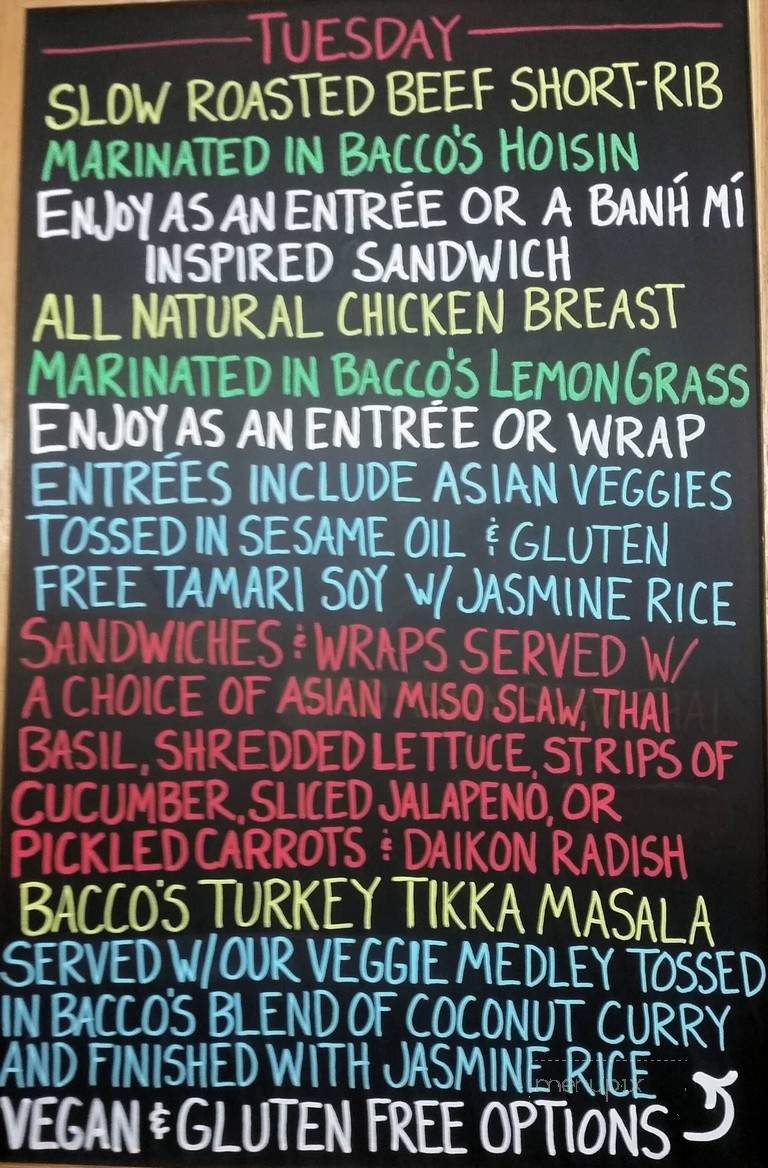 TUESDAY
SLOW ROASTED BEEF SHORT-RIB
MARINATED IN BACCO'S HOISIN
ENJOY AS AN ENTRÉE OR A BANH́ MÍ
INSPIRED SANDWICH
ALL NATURAL CHICKEN BREAST
MARINATED IN BACCO'S LEMONGRASS
ENJOY AS AN ENTRÉE OR WRAP
ENTRÉES INCLUDE ASIAN VEGGIES
TOSSED IN SESAME OIL & GLUTEN
FREE TAMARI SOY W/ JASMINE RICE
SANDWICHES & WRAPS SERVED W/
A CHOICE OF ASIAN MISO SLAW, THAI
BASIL, SHREDDED LETTUCE, STRIPS OF
CUCUMBER, SLICED JALAPENO, OR
PICKLED CARROTS & DAIKON RADISH
BACCO'S TURKEY TIKKA MASALA
SERVED W/ OUR VEGGIE MEDLEY TOSSED
IN BACCO'S BLEND OF COCONUT CURRY
AND FINISHED WITH JASMINE RICE
menupix
VEGAN & GLUTEN FREE OPTIONS